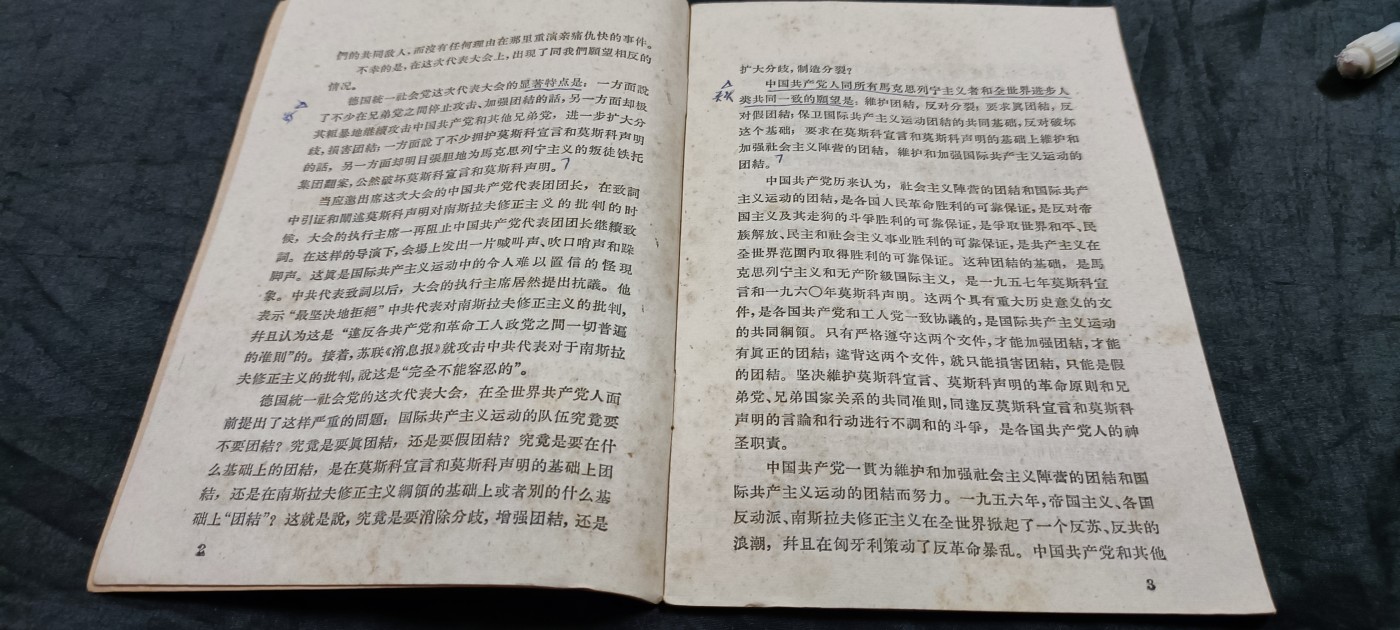 們的共同敌人，而沒有任何理由在那里重演亲痛仇快的事件。
不幸的是，在这次代表大会上，出現了同我們願望相反的
情况。
德国統一社会党这次代表大会的显著特点是：一方面說
了不少在兄弟党之間停止攻击、加强团結的話，另一方面却极
其粗暴地継續攻击中国共产党和其他兄弟党，进一步扩大分
歧，損害团結；一方面說了不少拥护莫斯科宣言和莫斯科声明
的話，另一方面却明目張胆地为馬克思列宁主义的叛徒铁托
集团翻案，公然破坏莫斯科宣言和莫斯科声明。
当应邀出席这次大会的中国共产党代表团团长，在致詞
中引证和闡述莫斯科声明对南斯拉夫修正主义的批判的时
候，大会的执行主席一再阻止中国共产党代表团团长継續致
詞。在这样的导演下，会場上发出一片喊叫声、吹口哨声和跺
脚声。这真是国际共产主义运动中的令人难以置信的怪現
象。中共代表致詞以后，大会的执行主席居然提出抗議。他
表示“最坚决地拒絕”中共代表对南斯拉夫修正主义的批判，
并且认为这是“違反各共产党和革命工人政党之間一切普遍
的准則”的。接着，苏联《消息报》就攻击中共代表对于南斯拉
夫修正主义的批判，說这是“完全不能容忍的”。
德国統一社会党的这次代表大会，在全世界共产党人面
前提出了这样严重的問題：国际共产主义运动的队伍究竟要
不要团結？究竟是要眞团結，还是要假团結？究竟是要在什
么基础上的团結，是在莫斯科宣言和莫斯科声明的基础上团
結，还是在南斯拉夫修正主义綱領的基础上或者別的什么基
础上“团結”？这就是說，究竟是要消除分歧，增强团結，还是
2
扩大分歧，制造分裂？
中国共产党人同所有馬克思列宁主义者和全世界进步人
类共同一致的願望是：維护团結，反对分裂；要求眞团結，反
对假团結；保卫国际共产主义运动团結的共同基础，反对破坏
这个基础；要求在莫斯科宣言和莫斯科声明的基础上維护和
加强社会主义陣营的团結，維护和加强国际共产主义运动的
团結。
中国共产党历来认为，社会主义陣营的团結和国际共产
主义运动的团結，是各国人民革命胜利的可靠保证，是反对帝
国主义及其走狗的斗爭胜利的可靠保证，是爭取世界和平、民
族解放、民主和社会主义事业胜利的可靠保证，是共产主义在
全世界范圍內取得胜利的可靠保证。这种团結的基础，是馬
克思列宁主义和无产阶級国际主义，是一九五七年莫斯科宣
言和一九六〇年莫斯科声明。这两个具有重大历史意义的文
件，是各国共产党和工人党一致协議的，是国际共产主义运动
的共同綱領。只有严格遵守这两个文件，才能加强团結，才能
有眞正的团結；違背这两个文件，就只能損害团結，只能是假
的团結。坚决維护莫斯科宣言、莫斯科声明的革命原則和兄
弟党、兄弟国家关系的共同准則，同違反莫斯科宣言和莫斯科
声明的言論和行动进行不調和的斗爭，是各国共产党人的神
圣职責。
中国共产党一貫为維护和加强社会主义陣营的团結和国
际共产主义运动的团結而努力。一九五六年，帝国主义、各国
反动派、南斯拉夫修正主义在全世界掀起了一个反苏、反共的
浪潮，并且在匈牙利策动了反革命暴乱。中国共产党和其他
3